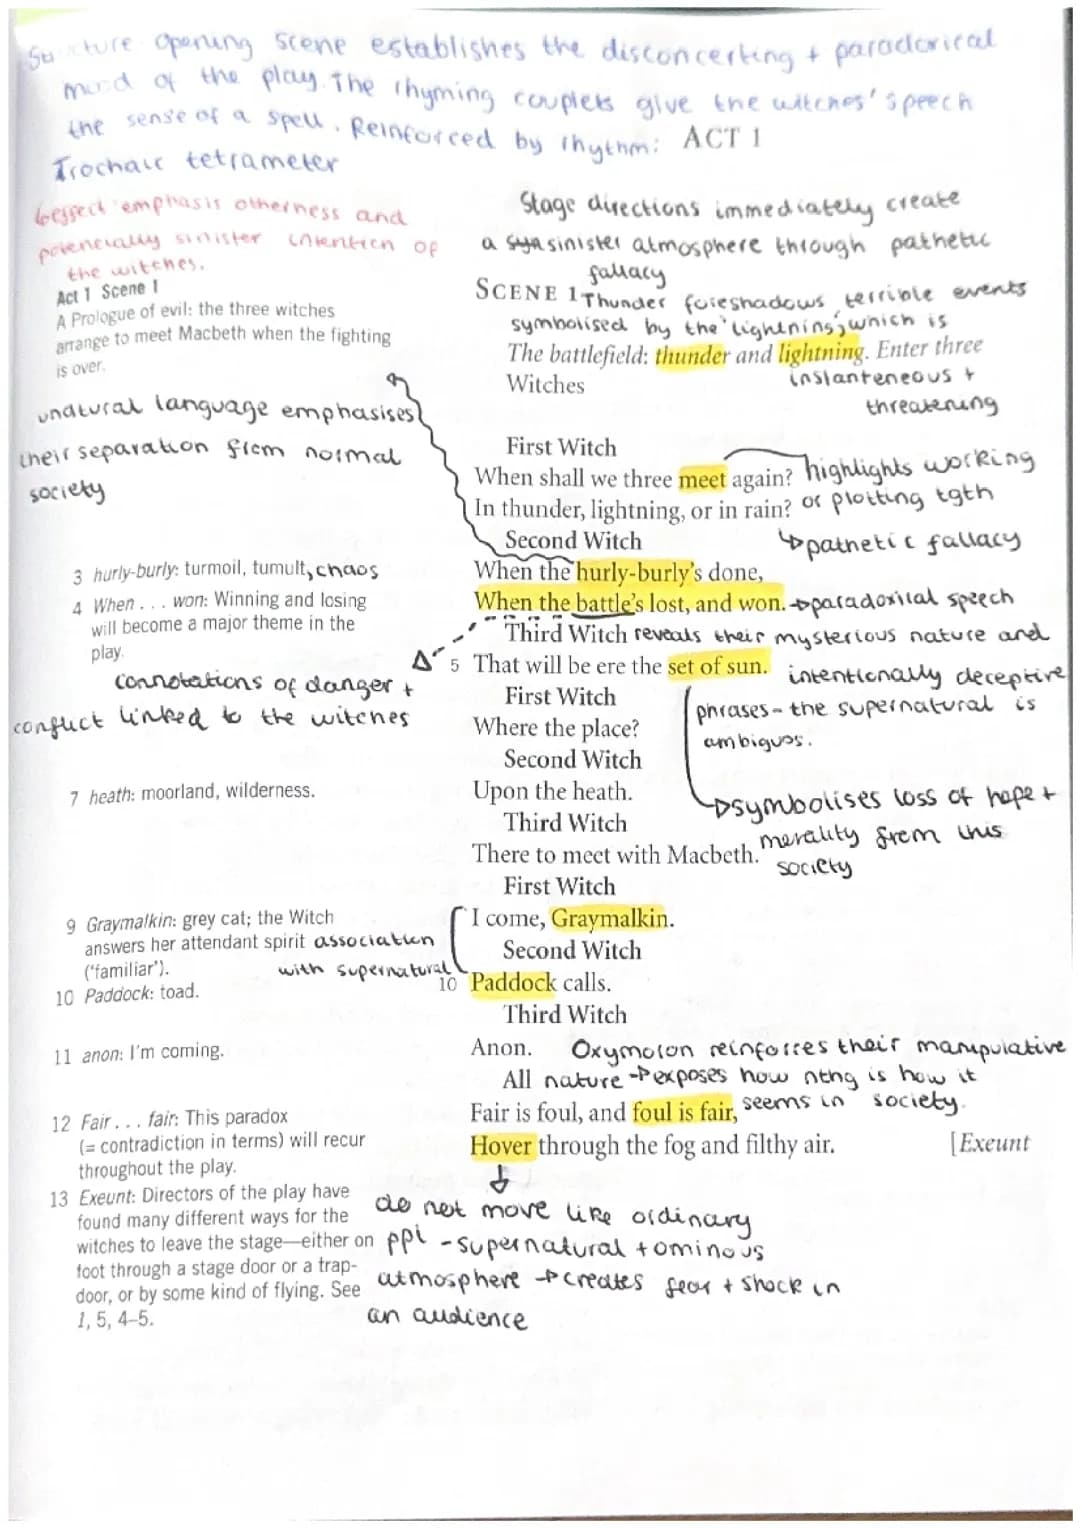 Structure opening scene establishes the disconcerting + paradorical
mood of the play. The rhyming couplets give the witches' speech
the sense of a spell. Reinforced by rhythm:
Trochaic tetrameter
ACT 1
↳effect emphasis otherness and
potentially sinister intention of
the witches.
Stage directions immediately create
a sinister atmosphere through pathetic
fallacy
Act 1 Scene 1
A Prologue of evil: the three witches
arrange to meet Macbeth when the fighting
is over.
SCENE 1
Thunder foreshadows terrible events
symbolised by the 'lightning', which is
The battlefield: thunder and lightning. Enter three
Witches
instanteneous +
threatening
unatural language emphasises
their separation from normal
society
First Witch
When shall we three meet again?
highlights working
or plotting tgth
In thunder, lightning, or in rain?
↳pathetic fallacy
Second Witch
3 hurly-burly: turmoil, tumult, chaos
When the hurly-burly's done,
4 When . . . won: Winning and losing
will become a major theme in the
play.
When the battle's lost, and won. →paradoxical speech
Third Witch reveals their mysterious nature and
5 That will be ere the set of sun. intentionally deceptive
phrases - the supernatural is
ambiguos.
connotations of danger +
conflict linked to the witches
First Witch
Where the place?
Second Witch
7 heath: moorland, wilderness.
Upon the heath.
↳symbolises loss of hope +
morality from this
society
Third Witch
There to meet with Macbeth.
First Witch
9 Graymalkin: grey cat; the Witch
answers her attendant spirit association
('familiar'). with supernatural
I come, Graymalkin.
Second Witch
10 Paddock: toad.
10 Paddock calls.
Third Witch
11 anon: I'm coming.
Anon. Oxymoron reinforces their manipulative
All nature → exposes how nthg is how it
seems in society.
12 Fair . . . fair: This paradox
(= contradiction in terms) will recur
throughout the play.
Fair is foul, and foul is fair,
Hover through the fog and filthy air. [Exeunt
13 Exeunt: Directors of the play have
found many different ways for the
witches to leave the stage—either on
foot through a stage door or a trap-
door, or by some kind of flying. See
1, 5, 4–5.
do not move like ordinary
ppl - supernatural + ominous
atmosphere → creates fear + shock in
an audience